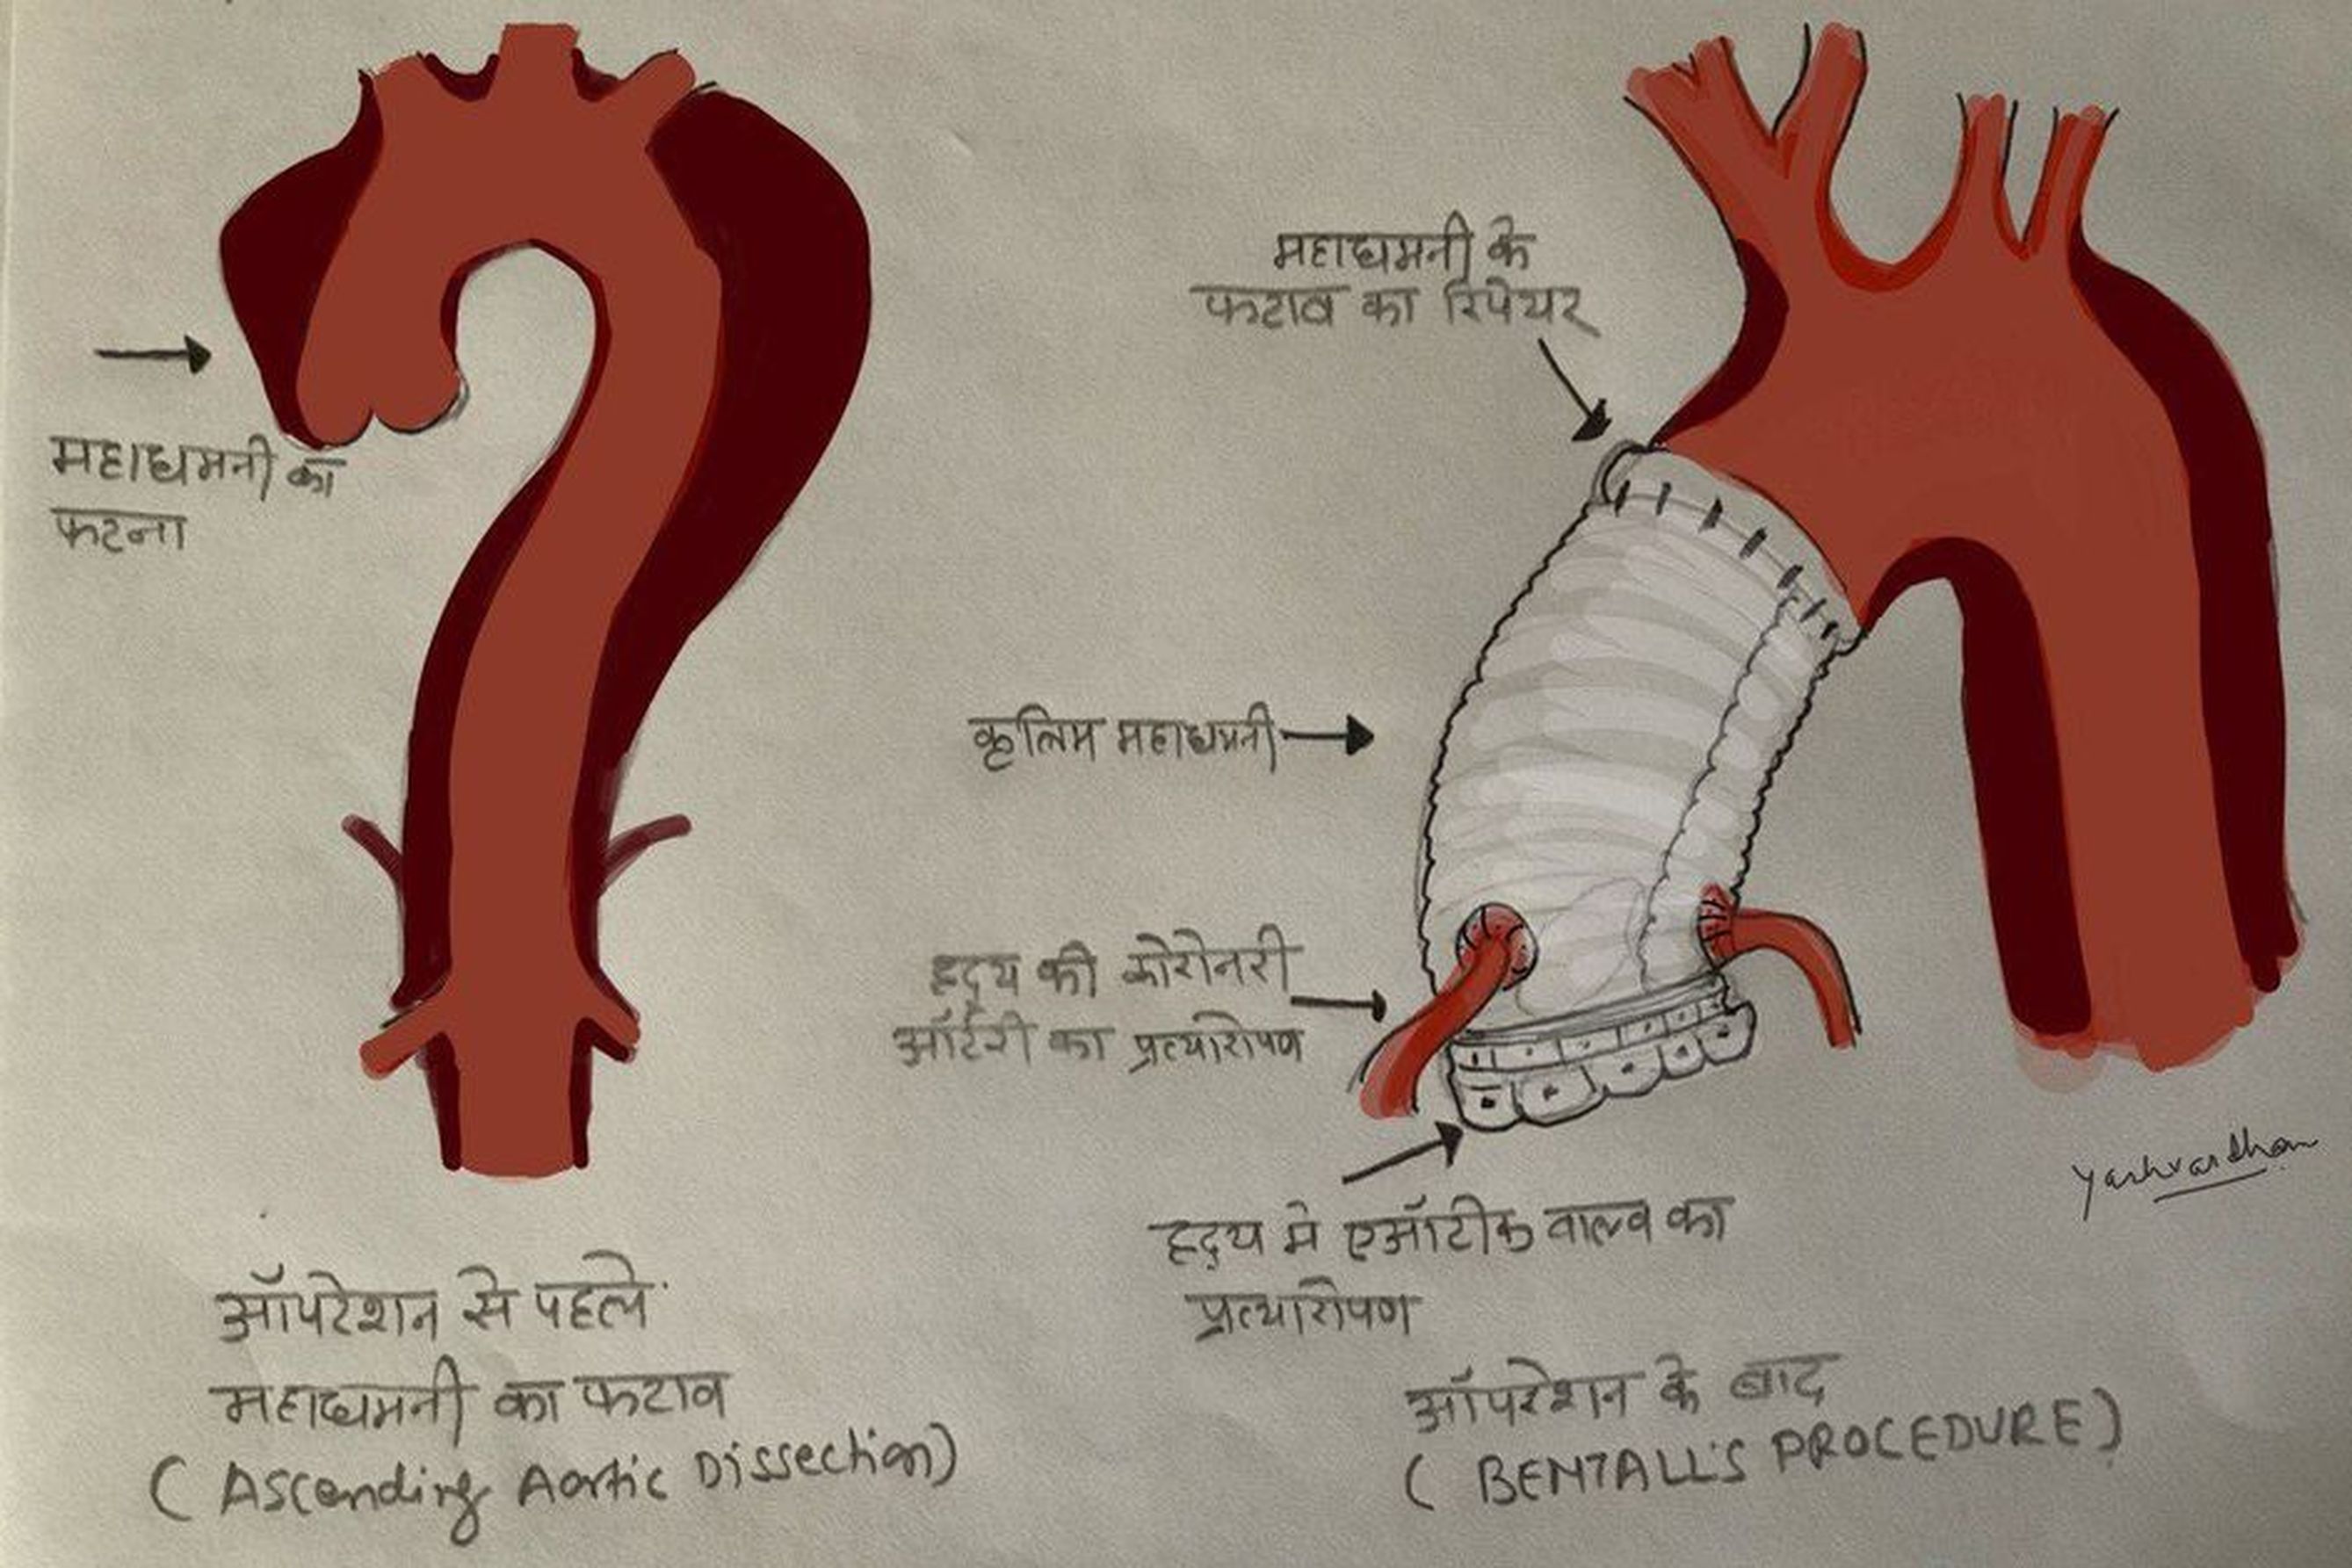 महाधमनी का
फटना
ऑपरेशन से पहले
महाधमनी का फटाव
( Ascending Aortic Dissection)
महाधमनी के
फटाव का रिपेयर
कृत्रिम महाधमनी
हृदय की कोरोनरी
ऑर्टरी का प्रत्यारोपण
हृदय मे एऑर्टीक वाल्व का
प्रत्यारोपण
ऑपरेशन के बाद
( BENTALL'S PROCEDURE)
Yashvardhan